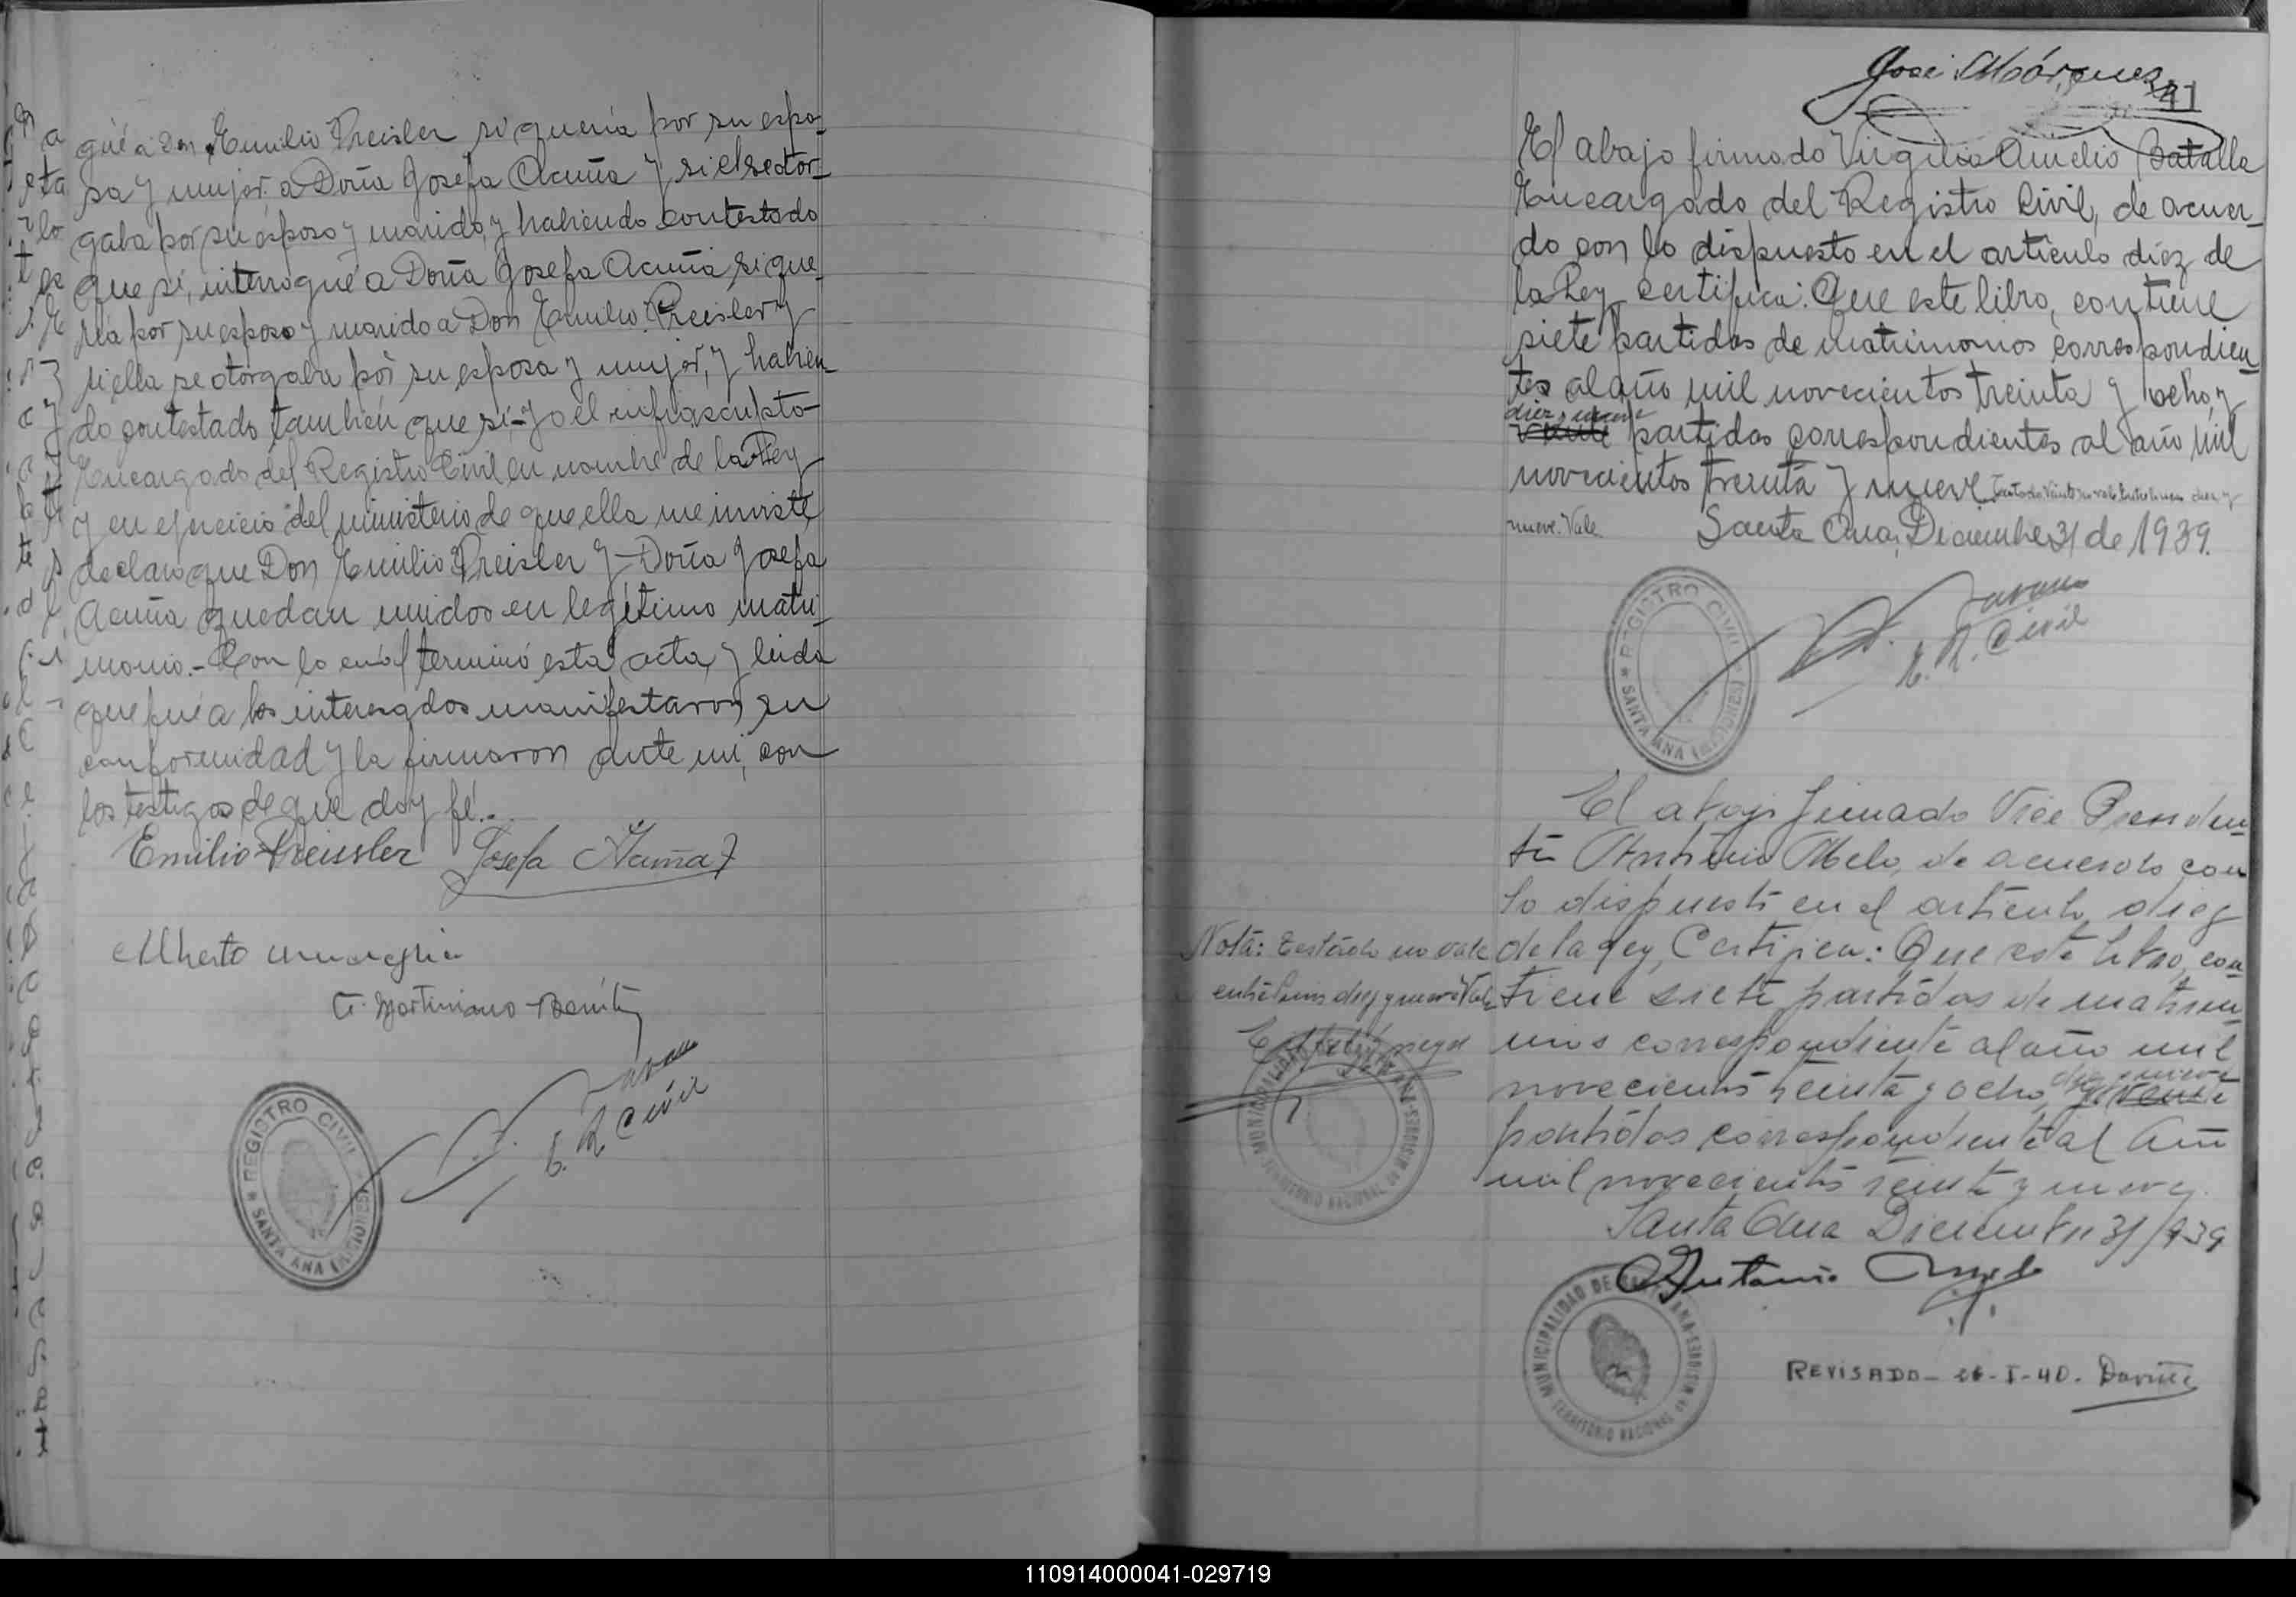 gué a Don Emilio Preisler si quería por su espo-
sa y mujer a Doña Josefa Acuña y si el se otor-
gaba por su esposo y marido, y habiendo contestado
que si, interrogué a Doña Josefa Acuña si que-
ría por su esposo y marido a Don Emilio Preisler y
si ella se otorgaba por su esposa y mujer, y habien-
do contestado también que si, - yo el infrascripto-
Encargado del Registro Civil en nombre de la Ley
y en ejercicio del ministerio de que ella me inviste,
declaro que Don Emilio Preisler y Doña Josefa
Acuña quedan unidos en legítimo matri-
monio.- Con lo cuál terminó esta acta, y leida
que fué a los interesados manifestaron su
conformidad y la firmaron ante mi, con
los testigos de que doy fé.-
Emilio Preissler Josefa Acuña
Alberto
Martiniano Benítez
E. R. Civil
REGISTRO CIVIL
SANTA ANA (MISIONES)
José Márquez
41
El abajo firmado Virgilio Amelio Batalla
Encargado del Registro Civil, de acuer-
do con lo dispuesto en el artículo diez de
la Ley certifica: Que este libro, contiene
siete partidas de matrimonios correspondien-
tes al año mil novecientos treinta y ocho, y
diez y nueve
veinte partidas correspondientes al año mil
novecientos treinta y nueve. Testado Veinte no vale Entrelineas diez y
nueve. Vale.
Santa Ana, Diciembre 31 de 1939.
E. R. Civil
REGISTRO CIVIL
SANTA ANA (MISIONES)
El abajo firmado Vice Presiden-
te Antonio Melo, de acuerdo con
lo dispuesto en el artículo diez
de la Ley, Certifica: Que este libro, con-
tiene siete partidas de matrimo-
nios correspondiente al año mil
novecientos treinta y ocho, diez y nueve
y veinte
partidas correspondiente al Año
mil novecientos treinta y nueve.
Santa Ana Diciembre 31/939
Nota: Testado no vale
entrelineas diez y nueve Vale
MUNICIPALIDAD DE SANTA ANA-MISIONES
TERRITORIO NACIONAL DE MISIONES
Antonio Melo
MUNICIPALIDAD DE SANTA ANA-MISIONES
TERRITORIO NACIONAL DE MISIONES
REVISADO - 26-I-40.
110914000041-029719